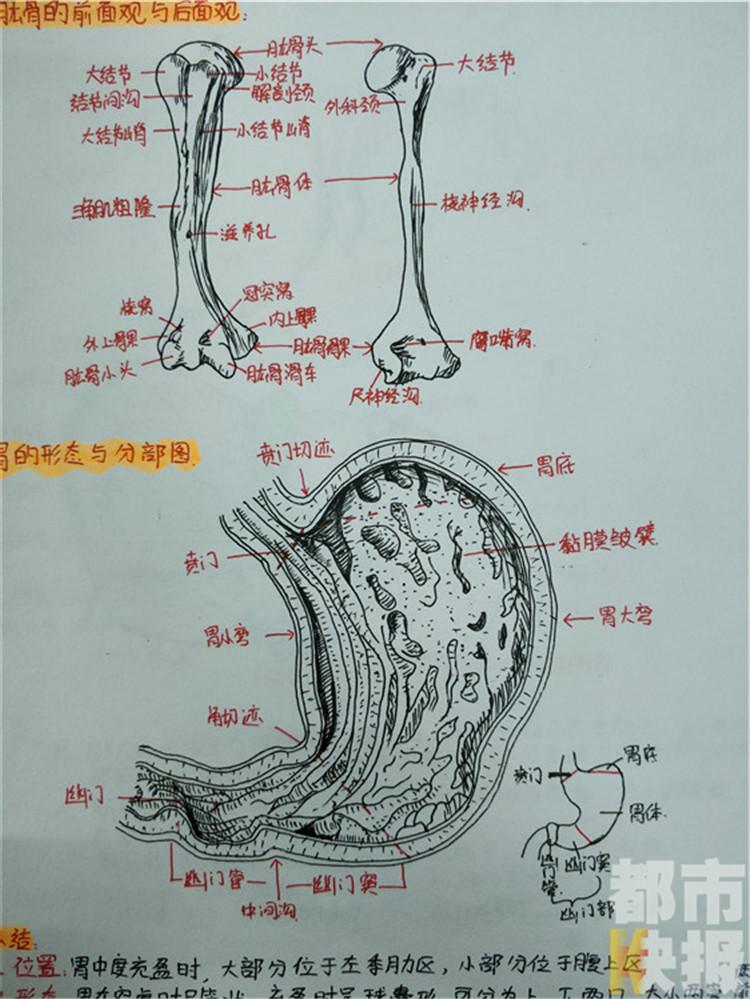 肱骨的前面观与后面观:
肱骨头
大结节
小结节
大结节
结节间沟
解剖颈
外科颈
大结节嵴
小结节嵴
肱骨体
三角肌粗隆
桡神经沟
滋养孔
桡窝
冠突窝
内上髁
外上髁
肱骨髁
鹰嘴窝
肱骨小头
肱骨滑车
尺神经沟
胃的形态与分部图
贲门切迹
胃底
黏膜皱襞
贲门
胃大弯
胃小弯
角切迹
幽门
胃底
贲门
胃体
幽门管
幽门窦
幽门管
中间沟
幽门窦
幽门部
小结:
位置:胃中度充盈时,大部分位于左季肋区,小部分位于腹上区
都市
快报